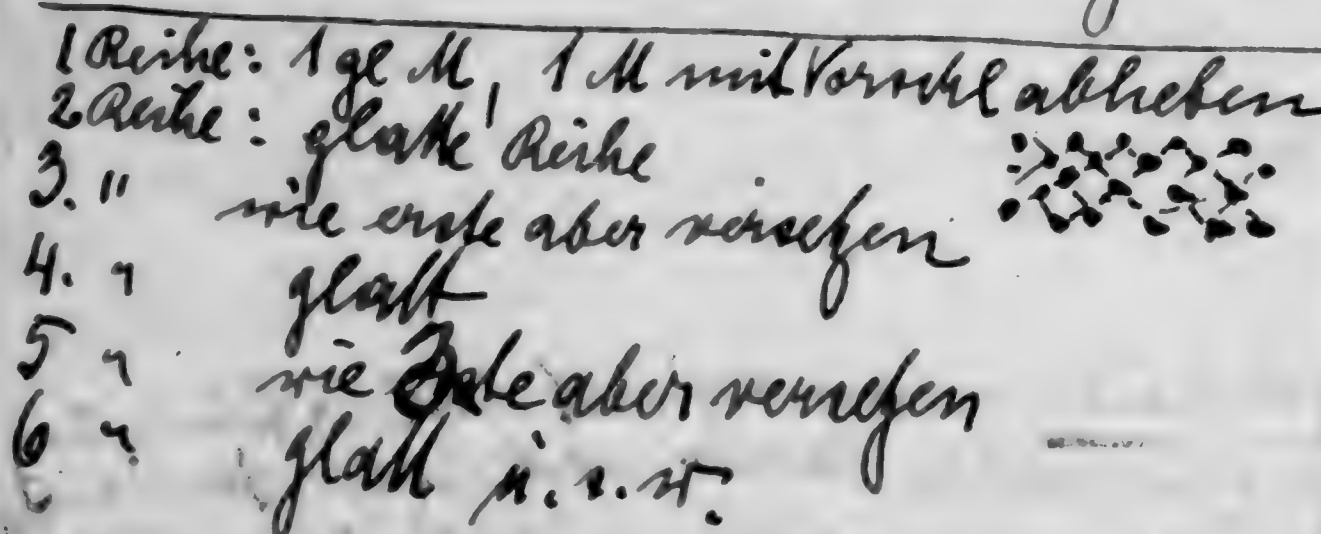 1 Reihe: 1 gl M, 1 M mit Vorschl abheben
2 Reihe: glatte Reihe
3. " wie erste aber versetzen
4. " glatt
5 " wie 3te aber versetzen
6 " glatt u.s.w.